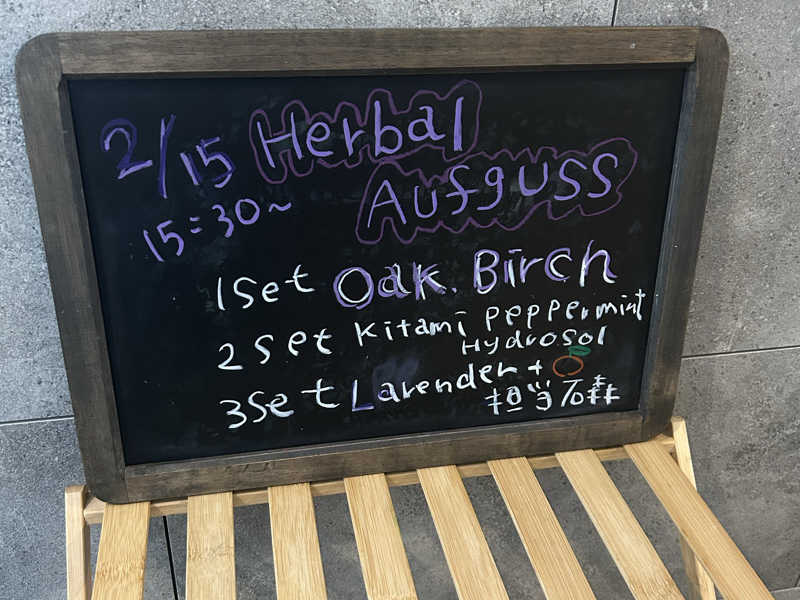 2/15 Herbal
Aufguss
15:30~
1Set Oak. Birch
2Set Kitami Peppermint
Hydrosol
3Set Lavender +
担当